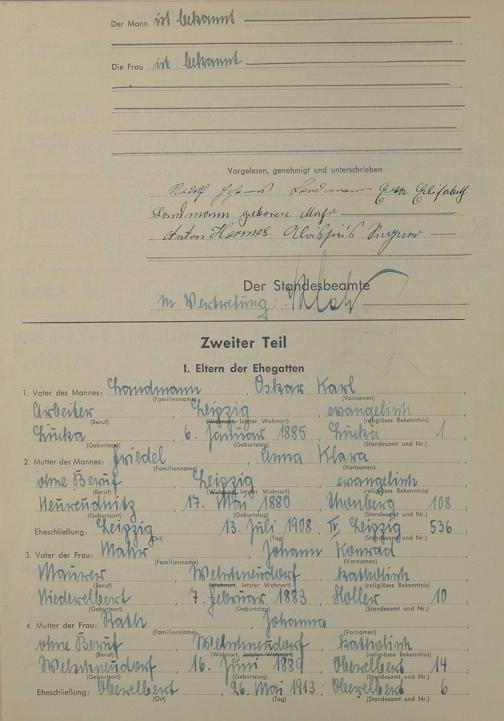 Der Mann ist bekannt
Die Frau ist bekannt
Vorgelesen, genehmigt und unterschrieben
Rudolf Johannes Landmann Eva Elisabeth
Landmann geboren Mahr
Anton Hermes. Aloisius
Der Standesbeamte
In Vertretung:
Zweiter Teil
I. Eltern der Ehegatten
1. Vater des Mannes: Landmann, Oskar Karl
(Familienname) (Vornamen)
Arbeiter, Leipzig, evangelisch
(Beruf) (Wohnort, letzter Wohnort) (religiöses Bekenntnis)
Lucka, 6. Januar 1885, Lucka 1
(Geburtsort) (Geburtstag) (Standesamt und Nr.)
2. Mutter des Mannes: Friedel, Anna Klara
(Familienname) (Vornamen)
ohne Beruf, Leipzig, evangelisch
(Beruf) (Wohnort, letzter Wohnort) (religiöses Bekenntnis)
Neureudnitz, 17. Mai 1880, 108
(Geburtsort) (Geburtstag) (Standesamt und Nr.)
Eheschließung: Leipzig, 13. Juli 1908, Leipzig 536
(Ort) (Tag) (Standesamt und Nr.)
3. Vater der Frau: Mahr, Johann Konrad
(Familienname) (Vornamen)
Maurer, Welschneudorf, katholisch
(Beruf) (Wohnort, letzter Wohnort) (religiöses Bekenntnis)
Niederelbert, 7. Februar 1883, Holler 10
(Geburtsort) (Geburtstag) (Standesamt und Nr.)
4. Mutter der Frau: Rath, Johanna
(Familienname) (Vornamen)
ohne Beruf, Welschneudorf, katholisch
(Beruf) (Wohnort, letzter Wohnort) (religiöses Bekenntnis)
Welschneudorf, 16. Juni 1889, Oberelbert 14
(Geburtsort) (Geburtstag) (Standesamt und Nr.)
Eheschließung: Oberelbert, 26. Mai 1913, Oberelbert 6
(Ort) (Tag) (Standesamt und Nr.)